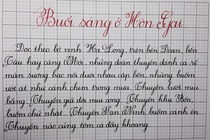 Buổi sáng ở Hòn Gai
Dọc theo bờ vịnh Hạ Long, trên bến Đoan, bến
Tàu hay cảng Mới, những đoàn thuyền đánh cá rẽ
màn sương bạc nối đuôi nhau cập bến, những buồm
ướt át như cánh chim trong mưa. Thuyền lưới mui
bằng. Thuyền giã đôi mui cong. Thuyền khu Bốn,
buồm chữ nhật. Thuyền Vạn Ninh buồm cánh én.
Thuyền nào cũng tôm cá đầy khoang.